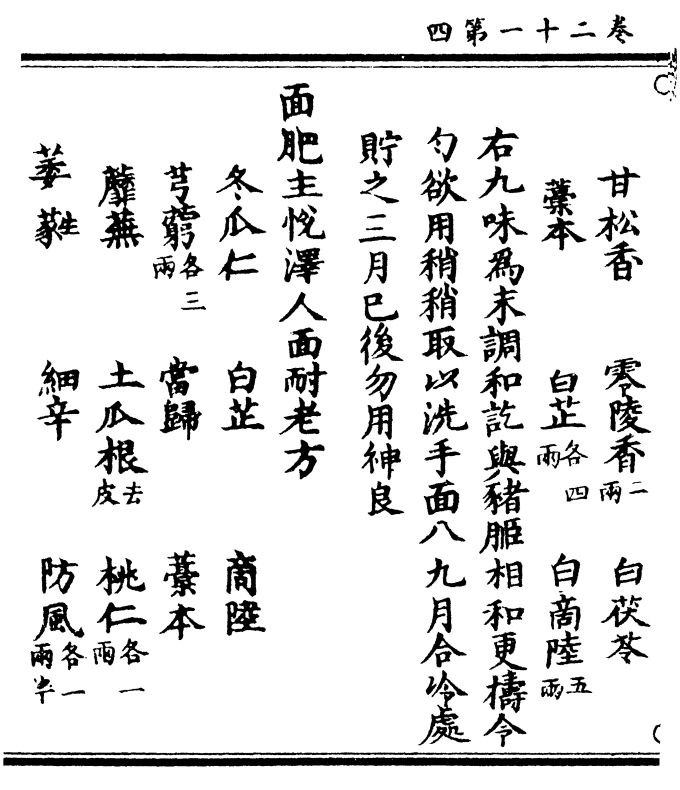 卷二十一第四
甘松香 零陵香二兩 白茯苓
藁本 白芷各四兩 白商陸五兩
右九味爲末調和訖與豬相和更擣令
勻欲用稍稍取以洗手面八九月合冷處
貯之三月巳後勿用神良
面肥主悅澤人面耐老方
冬瓜仁 白芷 商陸
芎藭各三兩 當歸 藁本
蘼蕪 土瓜根去皮 桃仁各一兩
萎蕤生 細辛 防風各一兩半